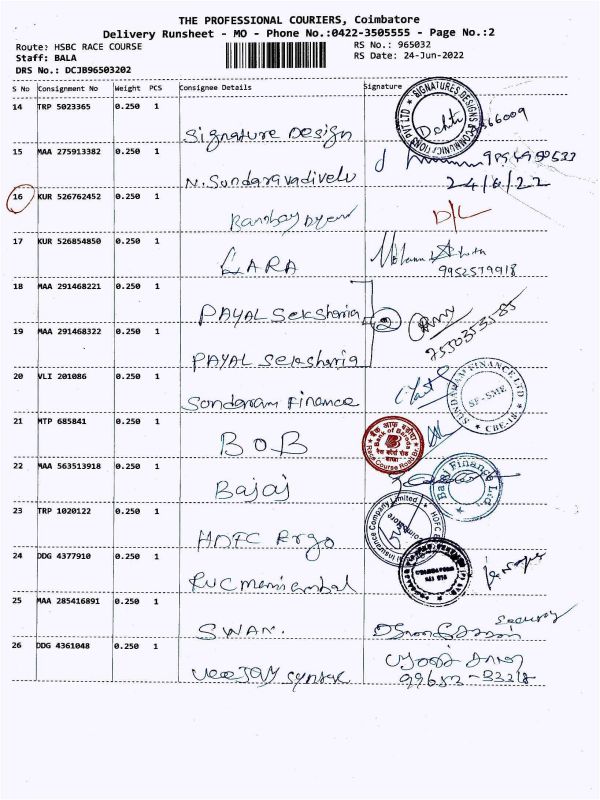 THE PROFESSIONAL COURIERS, Coimbatore
Delivery Runsheet - MO - Phone No.:0422-3505555 - Page No.:2
Route: HSBC RACE COURSE RS No.: 965032
Staff: BALA RS Date: 24-Jun-2022
DRS No.: DCJB96503202
S No Consignment No Weight PCS Consignee Details Signature
14 TRP 5023365 0.250 1
Signature Design
15 MAA 275913382 0.250 1
N. Sundaravadivelu
24/6/22
16 KUR 526762452 0.250 1
D/L
17 KUR 526854850 0.250 1
LARA
9952579918
18 MAA 291468221 0.250 1
PAYAL Seksharia
2
19 MAA 291468322 0.250 1
PAYAL Seksharia
20 VLI 201086 0.250 1
Sundaram Finance
SUNDARAM FINANCE LTD
SF-SME
CBE-18
21 MTP 685841 0.250 1
BOB
Bank of Baroda
22 MAA 563513918 0.250 1
Bajaj
Bajaj Finance Ltd.
23 TRP 1020122 0.250 1
HDFC Ergo
24 DDG 4377910 0.250 1
25 MAA 285416891 0.250 1
SWAN.
Security
26 DDG 4361048 0.250 1
99652-33218